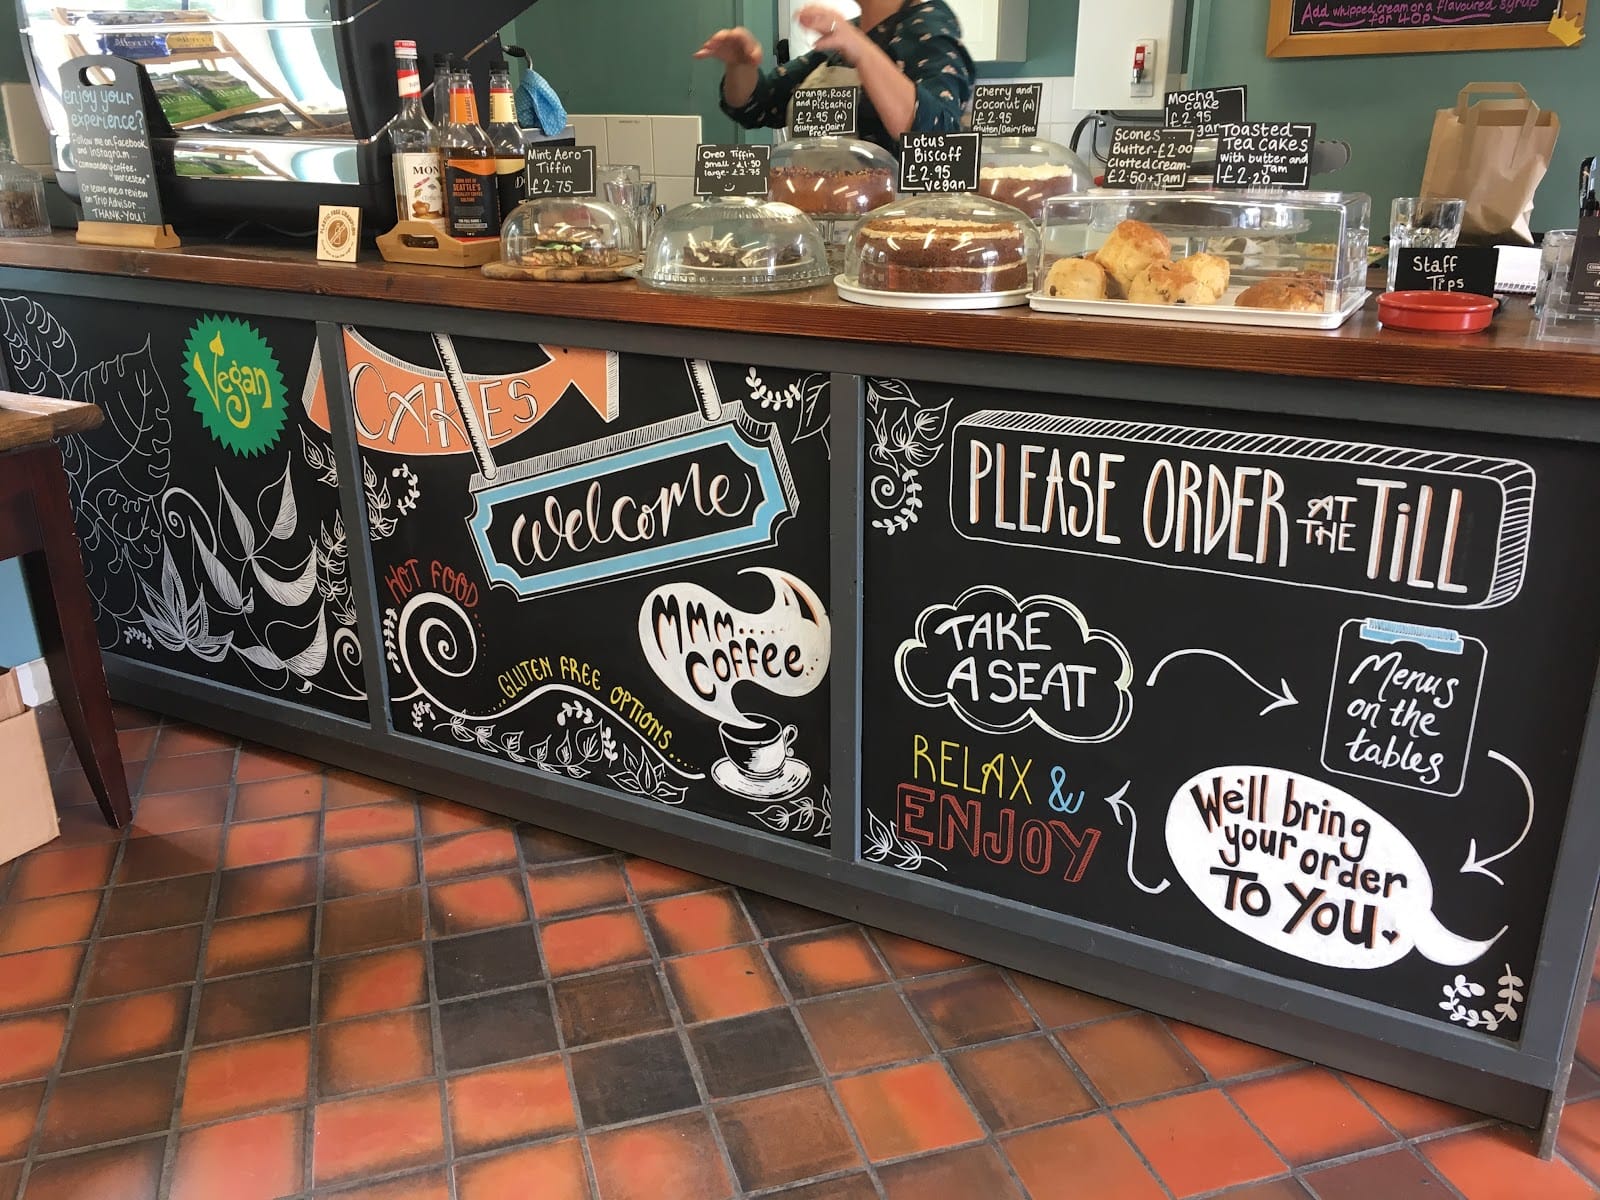 Add whipped cream or a flavoured syrup
for 40p
enjoy your
experience?
Follow me on Facebook
and Instagram...
"commandery coffee,
worcester"
Or leave me a review
on Trip Advisor......
THANK-YOU!
MON
Mint Aero
Tiffin
£2.75
Oreo Tiffin
small - £1.50
large - £2.75
Orange, Rose
and Pistachio
£2.95 (N)
Gluten + Dairy
Free
Lotus
Biscoff
£2.95
vegan
Cherry and
Coconut (N)
£2.95
Gluten/Dairy Free
Mocha
cake
£2.95
Scones -
Butter - £2.00
Clotted Cream -
£2.50 + Jam
Toasted
Tea Cakes
with butter and
jam
£2.20
Staff
Tips
Vegan
CAKES
Welcome
HOT FOOD...
MMM.....
COFFEE..
...GLUTEN FREE OPTIONS....
PLEASE ORDER AT THE TILL
TAKE
A SEAT
Menus
on the
tables
We'll bring
your order
To You
RELAX &
ENJOY